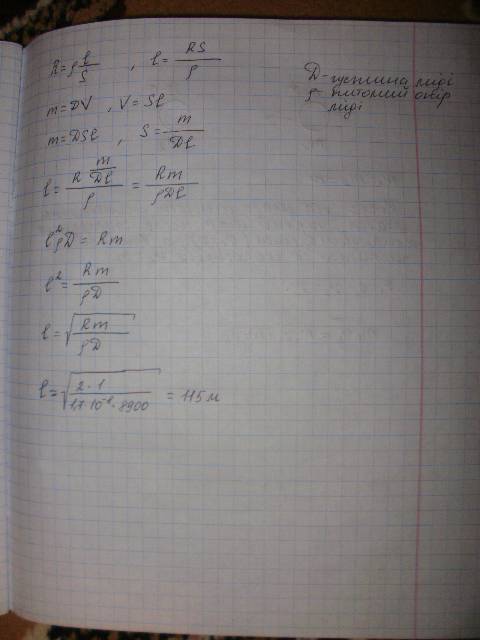 R = ρ l/S , l = RS/ρ
D - густина міді
ρ - питомий опір
міді
m = DV , V = Sl
m = DSl , S = m/Dl
l = R m/Dl / ρ = Rm/ρDl
l²ρD = Rm
l² = Rm/ρD
l = √Rm/ρD
l = √2·1/1,7·10⁻⁸·8900 = 115 м